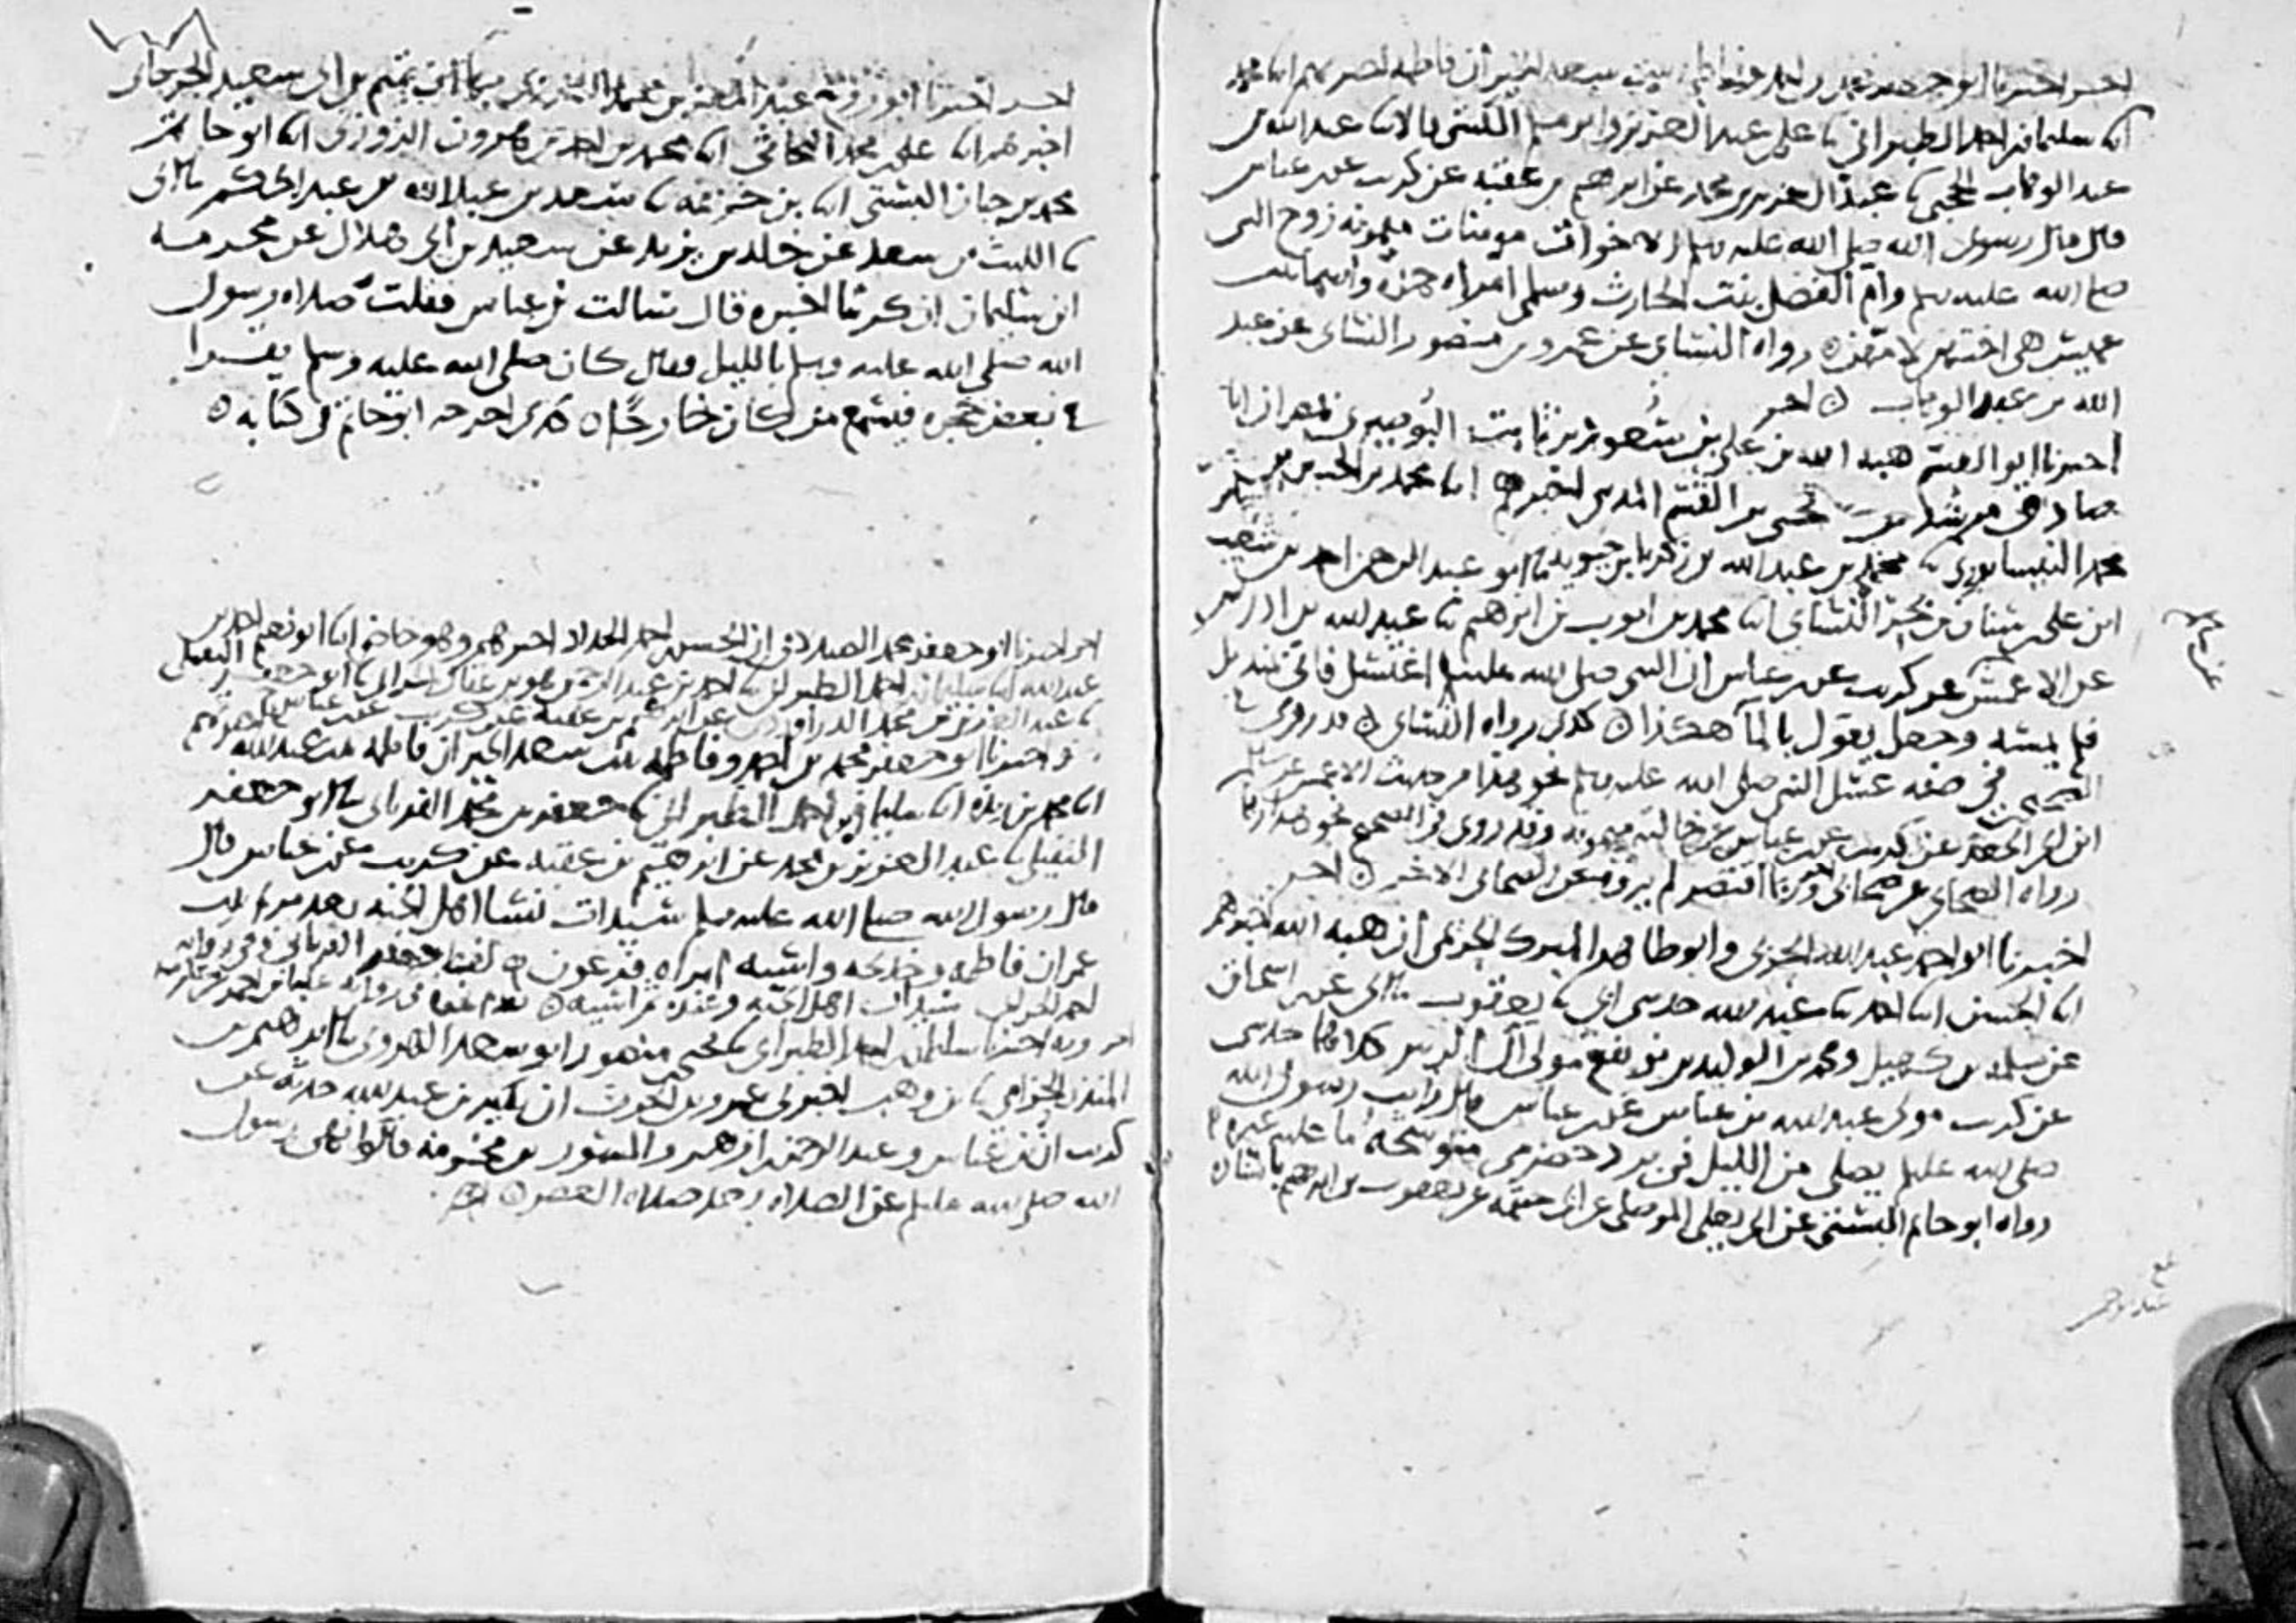 اخبرنا ابو جعفر محمد بن احمد وفاطمة بنت سعد الخير ان فاطمة اخبرتهم انا محمد
انا سليمان بن احمد الطبراني نا علي بن عبد العزيز وابو مسلم الكشي قالا نا عبد الله بن
عبد الوهاب الحجبي نا عبد العزيز بن محمد عن ابرهيم بن عقبة عن كريب عن بن عباس
قال قال رسول الله صلى الله عليه وسلم الاخوات مومنات ميمونة زوج النبي
صلى الله عليه وسلم وام الفضل بنت الحارث وسلمى امراة حمزة واسما بنت
عميس هي اختهن لامهن رواه النسائي عن عمرو بن منصور النسائي عن عبد
الله بن عبد الوهاب اخر
اخبرنا ابو القسم هبة الله بن علي بن سعود بن ثابت البوصيري بمصر ان ابا
صادق مرشد بن يحيى بن القسم المديني اخبرهم انا محمد بن الحسين بن
محمد النيسابوري نا محمد بن عبد الله بن زكريا بن حيويه نا ابو عبد الرحمن احمد بن شعيب
ابن علي بن سنان بن بحر النسائي انا محمد بن ايوب بن ابرهيم نا عبد الله بن ادريس
عن الاعمش عن كريب عن بن عباس ان النبي صلى الله عليه وسلم اغتسل فاتي بمنديل
فلم يمسه وجعل يقول بالما هكذا كذى رواه النسائي قد روي في
الصحيحين في صفة غسل النبي صلى الله عليه وسلم نحو هذا من حديث الاعمش عن سالم
ابن ابي الجعد عن كريب عن بن عباس عن خالته ميمونة وقد روي في الصحيح نحو هذا
رواه الصحابي عن صحابي اخر وربما اقتصر لم يروه عن الصحابي الاخر اخر
اخبرنا ابو احمد عبد الله الحربي وابو طاهر المبرك الحريمي ان هبة الله اخبرهم
انا الحسن انا احمد نا عبد الله حدثني ابي نا يعقوب نا ابي عن بن اسحاق
عن سلمة بن كهيل ومحمد بن الوليد بن نويفع مولى ال الزبير كلاهما حدثني
عن كريب مولى عبد الله بن عباس عن بن عباس قال رايت رسول الله
صلى الله عليه وسلم يصلي من الليل في برد حضرمي متوشحه ما عليه غيره
رواه ابو حاتم البستي عن ابي يعلى الموصلي عن ابي خيثمة عن يعقوب بن ابرهيم باسناده
اخبرنا ابو روح عبد المعز بن محمد ان تميم بن ابي سعيد الجرجاني
اخبرهم انا علي بن محمد البحاثي انا محمد بن احمد بن هرون الزوزني انا ابو حاتم
محمد بن حبان البستي انا بن خزيمة نا سعد بن عبد الله بن عبد الحكم نا ابي
نا الليث بن سعد عن خالد بن يزيد عن سعيد بن ابي هلال عن مخرمة
ابن سليمان ان كريبا اخبره قال سالت بن عباس فقلت صلاة رسول
الله صلى الله عليه وسلم بالليل فقال كان صلى الله عليه وسلم يقرا
في بعض حجره فيسمع من كان خارجا كذى اخرجه ابو حاتم في كتابه
اخر اخبرنا ابو جعفر محمد الصيدلاني ان الحسن بن احمد الحداد اخبرهم وهو حاضر انا ابو نعيم احمد بن
عبد الله انا سليمان بن احمد الطبراني نا احمد بن عبد الرحمن نا ابو جعفر النفيلي
نا عبد العزيز بن محمد الدراوردي عن ابرهيم بن عقبة عن كريب عن بن عباس
واخبرنا ابو جعفر محمد بن احمد وفاطمة بنت سعد الخير ان فاطمة بنت عبد الله
انا محمد بن ريذة انا سليمان بن احمد الطبراني نا جعفر بن محمد الفريابي نا ابو جعفر
النفيلي نا عبد العزيز بن محمد عن ابرهيم بن عقبة عن كريب عن بن عباس قال
قال رسول الله صلى الله عليه وسلم سيدات نسا اهل الجنة بعد مريم بنت
عمران فاطمة وخديجة واسية امراة فرعون لفظ جعفر الفريابي وفي رواية
سيدات اهل الجنة وعنده ثم اسية
وبه اخبرنا سليمان بن احمد الطبراني نا يحيى بن منصور ابو سعد الهروي نا ابرهيم بن
المنذر الحزامي نا بن وهب اخبرني عمرو بن الحرث ان بكير بن عبد الله حدثه عن
كريب ان بن عباس وعبد الرحمن بن ازهر والمسور بن مخرمة قالوا نهى رسول
الله صلى الله عليه وسلم عن الصلاة بعد صلاة العصر